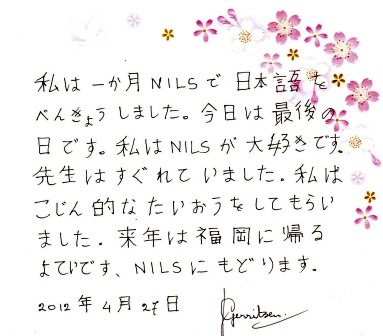 私は一か月NILSで日本語を
べんきょうしました。今日は最後の
日です。私はNILSが大好きです。
先生はすぐれていました。私は
こじん的なたいおうをしてもらい
ました。来年は福岡に帰る
よていです、NILSにもどります。
2012年4月27日 Gerritsen.